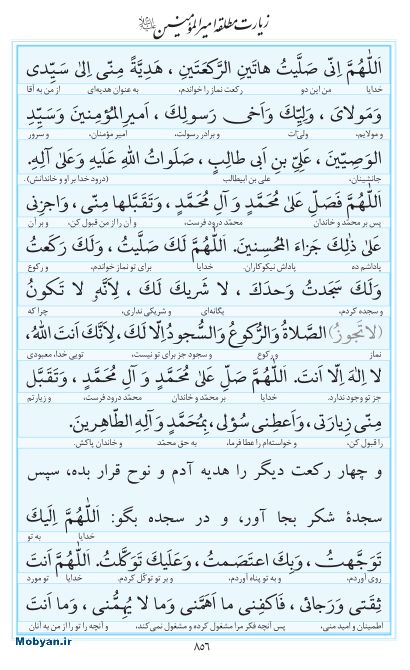 زیارت مطلقه امیرالمؤمنین علیه‌السلام
اَللّٰهُمَّ اِنّى صَلَّيْتُ هاتَيْنِ الرَّكْعَتَيْنِ ، هَدِيَّةً مِنّى اِلىٰ سَيِّدى
خدایا من این دو رکعت نماز را خواندم، به عنوان هدیه‌ای از من به آقا
وَمَولاىَ ، وَلِيِّكَ وَاَخى رَسولِكَ ، اَميرِالمُؤمِنينَ وَسَيِّدِ
و مولایم، ولیّ‌ات و برادر رسولت، امیر مؤمنان، و سرور
الوَصِيّينَ ، عَلِىِّ بنِ اَبى طالِبٍ ، صَلَواتُ اللهِ عَلَيهِ وَعَلىٰ آلِهِ.
جانشینان، علی بن ابیطالب (درود خدا بر او و خاندانش).
اَللّٰهُمَّ فَصَلِّ عَلىٰ مُحَمَّدٍ وَ آلِ مُحَمَّدٍ ، وَتَقَبَّلها مِنّى ، وَاجزِنى
پس بر محمّد و خاندان محمّد درود فرست، و آن را از من قبول کن، و بر آن
عَلىٰ ذٰلِكَ جَزاءَ المُحسِنينَ. اَللّٰهُمَّ لَكَ صَلَّيتُ ، وَلَكَ رَكَعتُ
پاداشم ده پاداش نیکوکاران. خدایا برای تو نماز خواندم، و رکوع
وَلَكَ سَجَدتُ وَحدَكَ ، لا شَريكَ لَكَ ، لِاَنَّهُ لا تَكونُ
و سجده کردم، یگانه‌ای و شریکی نداری، چرا که
(لا تَجوزُ) الصَّلاةُ وَالرُّكوعُ وَالسُّجودُ اِلّا لَكَ، لِاَنَّكَ اَنتَ اللهُ،
نماز و رکوع و سجود جز برای تو نیست، تویی خدا، معبودی
لا اِلٰهَ اِلّا اَنتَ. اَللّٰهُمَّ صَلِّ عَلىٰ مُحَمَّدٍ وَ آلِ مُحَمَّدٍ ، وَتَقَبَّل
جز تو وجود ندارد. خدایا بر محمّد و خاندان محمّد درود فرست، و زیارتم
مِنّى زِيارَتى ، وَاَعطِنى سُؤلى ، بِمُحَمَّدٍ وَآلِهِ الطّاهِرينَ.
را قبول کن، و خواسته‌ام را عطا فرما، به حق محمّد و خاندان پاکش.
و چهار رکعت دیگر را هدیه آدم و نوح قرار بده، سپس
سجدهٔ شکر بجا آور، و در سجده بگو: اَللّٰهُمَّ اِلَيكَ
خدایا به تو
تَوَجَّهتُ ، وَبِكَ اعتَصَمتُ ، وَعَلَيكَ تَوَكَّلتُ. اَللّٰهُمَّ اَنتَ
روی آوردم، و به تو پناه آوردم، و بر تو توکّل کردم. خدایا تو مورد
ثِقَتى وَرَجائى ، فَاكفِنى ما اَهَمَّنى وَما لا يُهِمُّنى ، وَما اَنتَ
اطمینان و امید منی، پس آنچه فکر مرا مشغول کرده و مشغول نمی‌کند، و آنچه را تو را از من به آنان
Mobyan.ir
۸۵۶